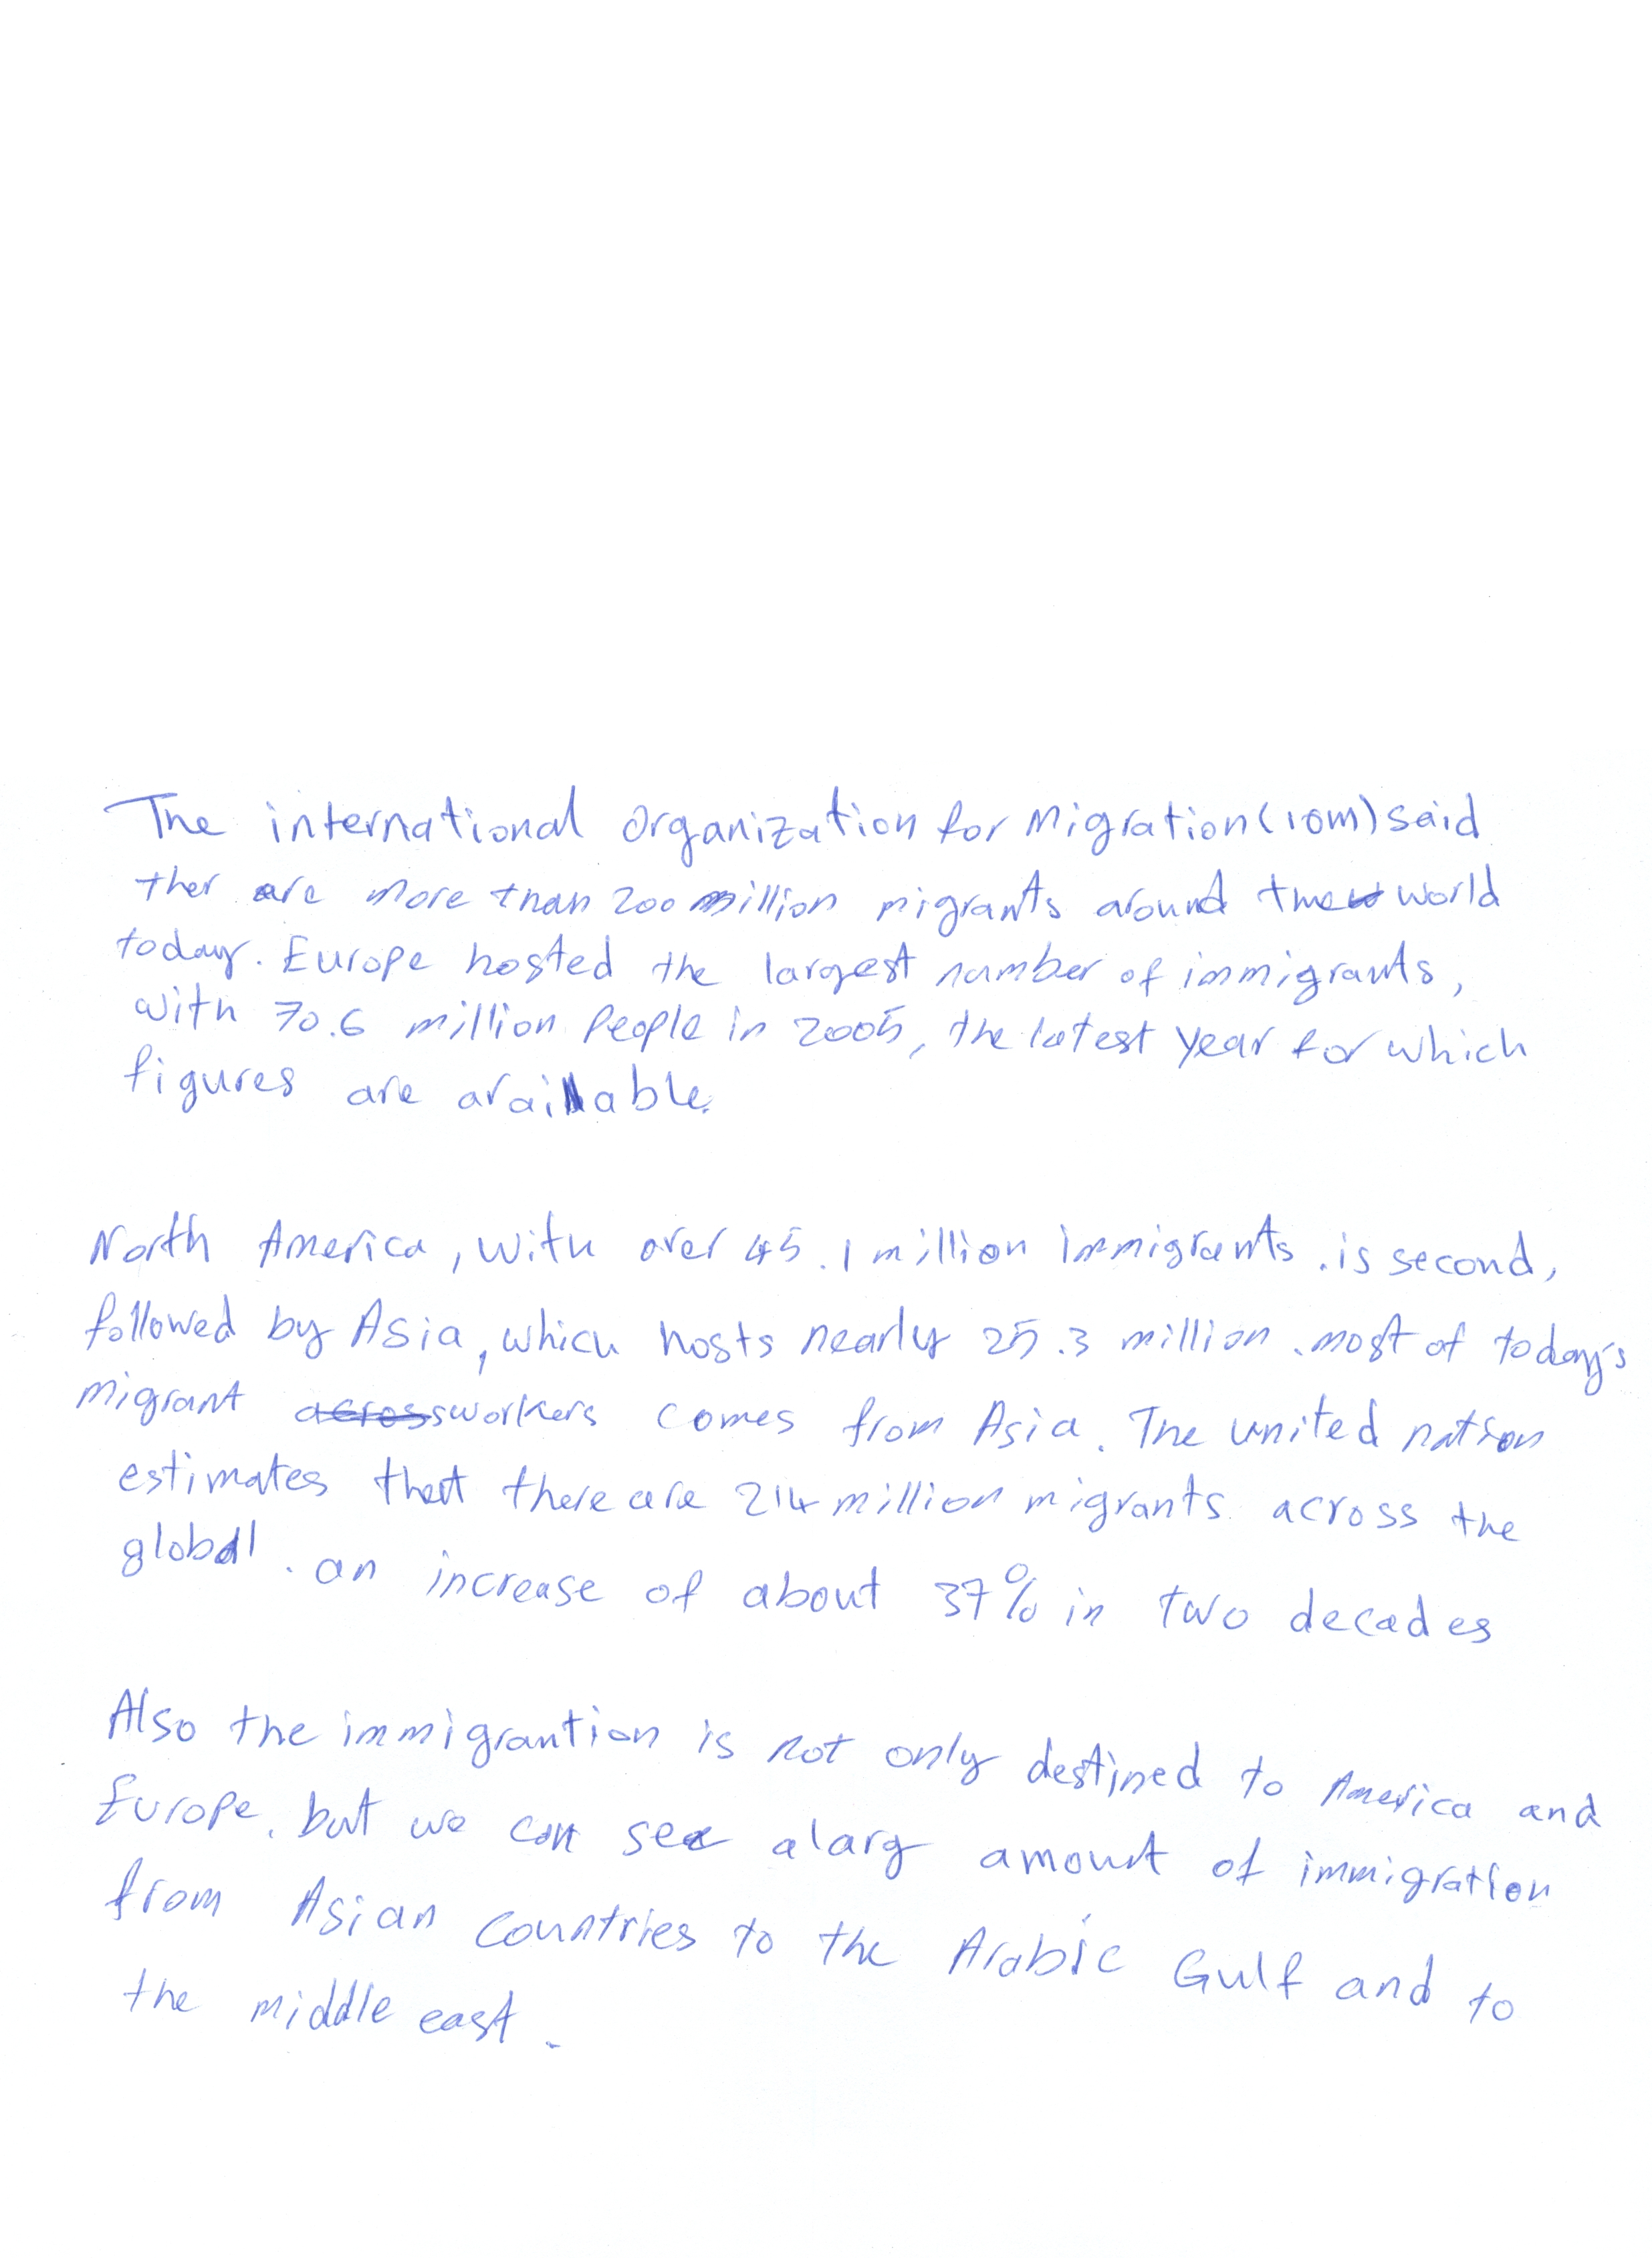 The international organization for Migration (IOM) said
ther are more than 200 million migrants around the world
today. Europe hosted the largest number of immigrants,
with 70.6 million People in 2005, the latest year for which
figures are available.
North America, with over 45.1 million immigrants. is second,
followed by Asia, which hosts nearly 25.3 million. most of today's
migrant workers comes from Asia. The united nation
estimates that there are 214 million migrants across the
global. an increase of about 37% in two decades
Also the immigrantion is not only destined to America and
Europe. but we can see alarg amount of immigration
from Asian countries to the Arabic Gulf and to
the middle east.